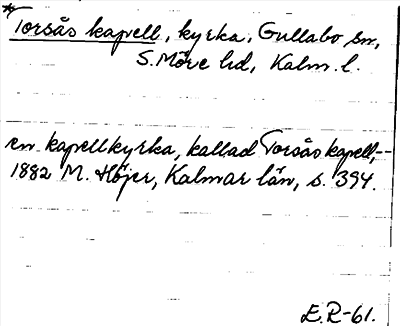 *Torsås kapell, kyrka, Gullabo sn,
S. Möre hd, Kalm. l.
en kapellkyrka, kallad Torsås kapell, --
1882 M. Höjer, Kalmar län, s. 394.
E.R-61.